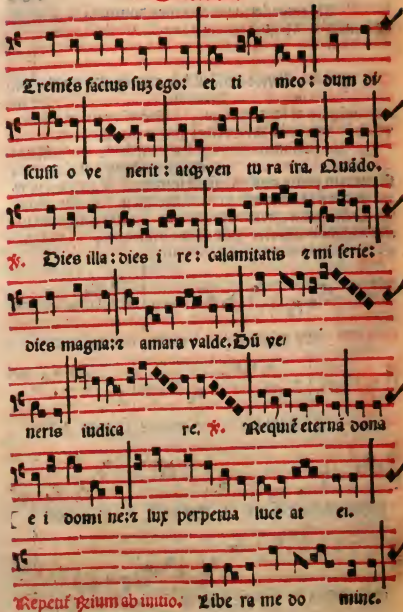 Tremēs factus suꝫ ego: et ti meo: dum di/
scussi o ve nerit: atqꝫ ven tu ra ira. Quādo.
℣. Dies illa: dies i re: calamitatis ⁊ mi serie:
dies magna: ⁊ amara valde. Dū ve/
neris iudica re. ℣. Requiē eternā dona
e i domi ne: ⁊ lux perpetua luce at ei.
Repetit᷑ ℞ium ab initio. Libe ra me do mine.